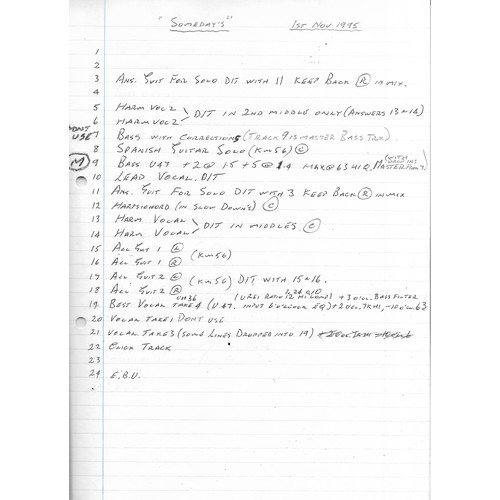 "SOMEDAY'S" 1ST NOV 1995
1
2
3 ANS. GUIT FOR SOLO DIT WITH 11 KEEP BACK (R) IN MIX.
4
5 HARM VOC 2
DIT IN 2ND MIDDLE ONLY (ANSWERS 13+14)
6 HARM VOC 2
DON'T USE 7 BASS WITH CORRECTIONS (TRACK 9 IS MASTER BASS TRK)
8 SPANISH GUITAR SOLO (KM56) (C)
(M) 9 BASS U47 +2 @ 1.5 +5 @ 1.4 MAX @ 63 HIQ. (WITH DROP INS MASTER FROM 7)
10 LEAD VOCAL. DIT
11 ANS. GUIT. FOR SOLO DIT WITH 3 KEEP BACK (R) IN MIX
12 HARPSICHORD (IN SLOW DOWN'S) (C)
13 HARM VOCAL
DIT IN MIDDLES (C)
14 HARM VOCAL
15 ACC GUIT 1 (L)
(KM56)
16 ACC GUIT 1 (R)
17 ACC GUIT 2 (L)
(KM56) DIT WITH 15+16.
18 ACC GUIT 2 (R)
19 BEST VOCAL TAKE 4 (U.47. INPUT 6 O'CLOCK EQ) 7KHZ, 63
(UREI RATIO 12 BASS FILTER
20 VOCAL TAKE 1 DON'T USE
21 VOCAL TAKE 3 (SOME LINES DROPPED INTO 19)
22 CLICK TRACK
23
24 E.B.U.